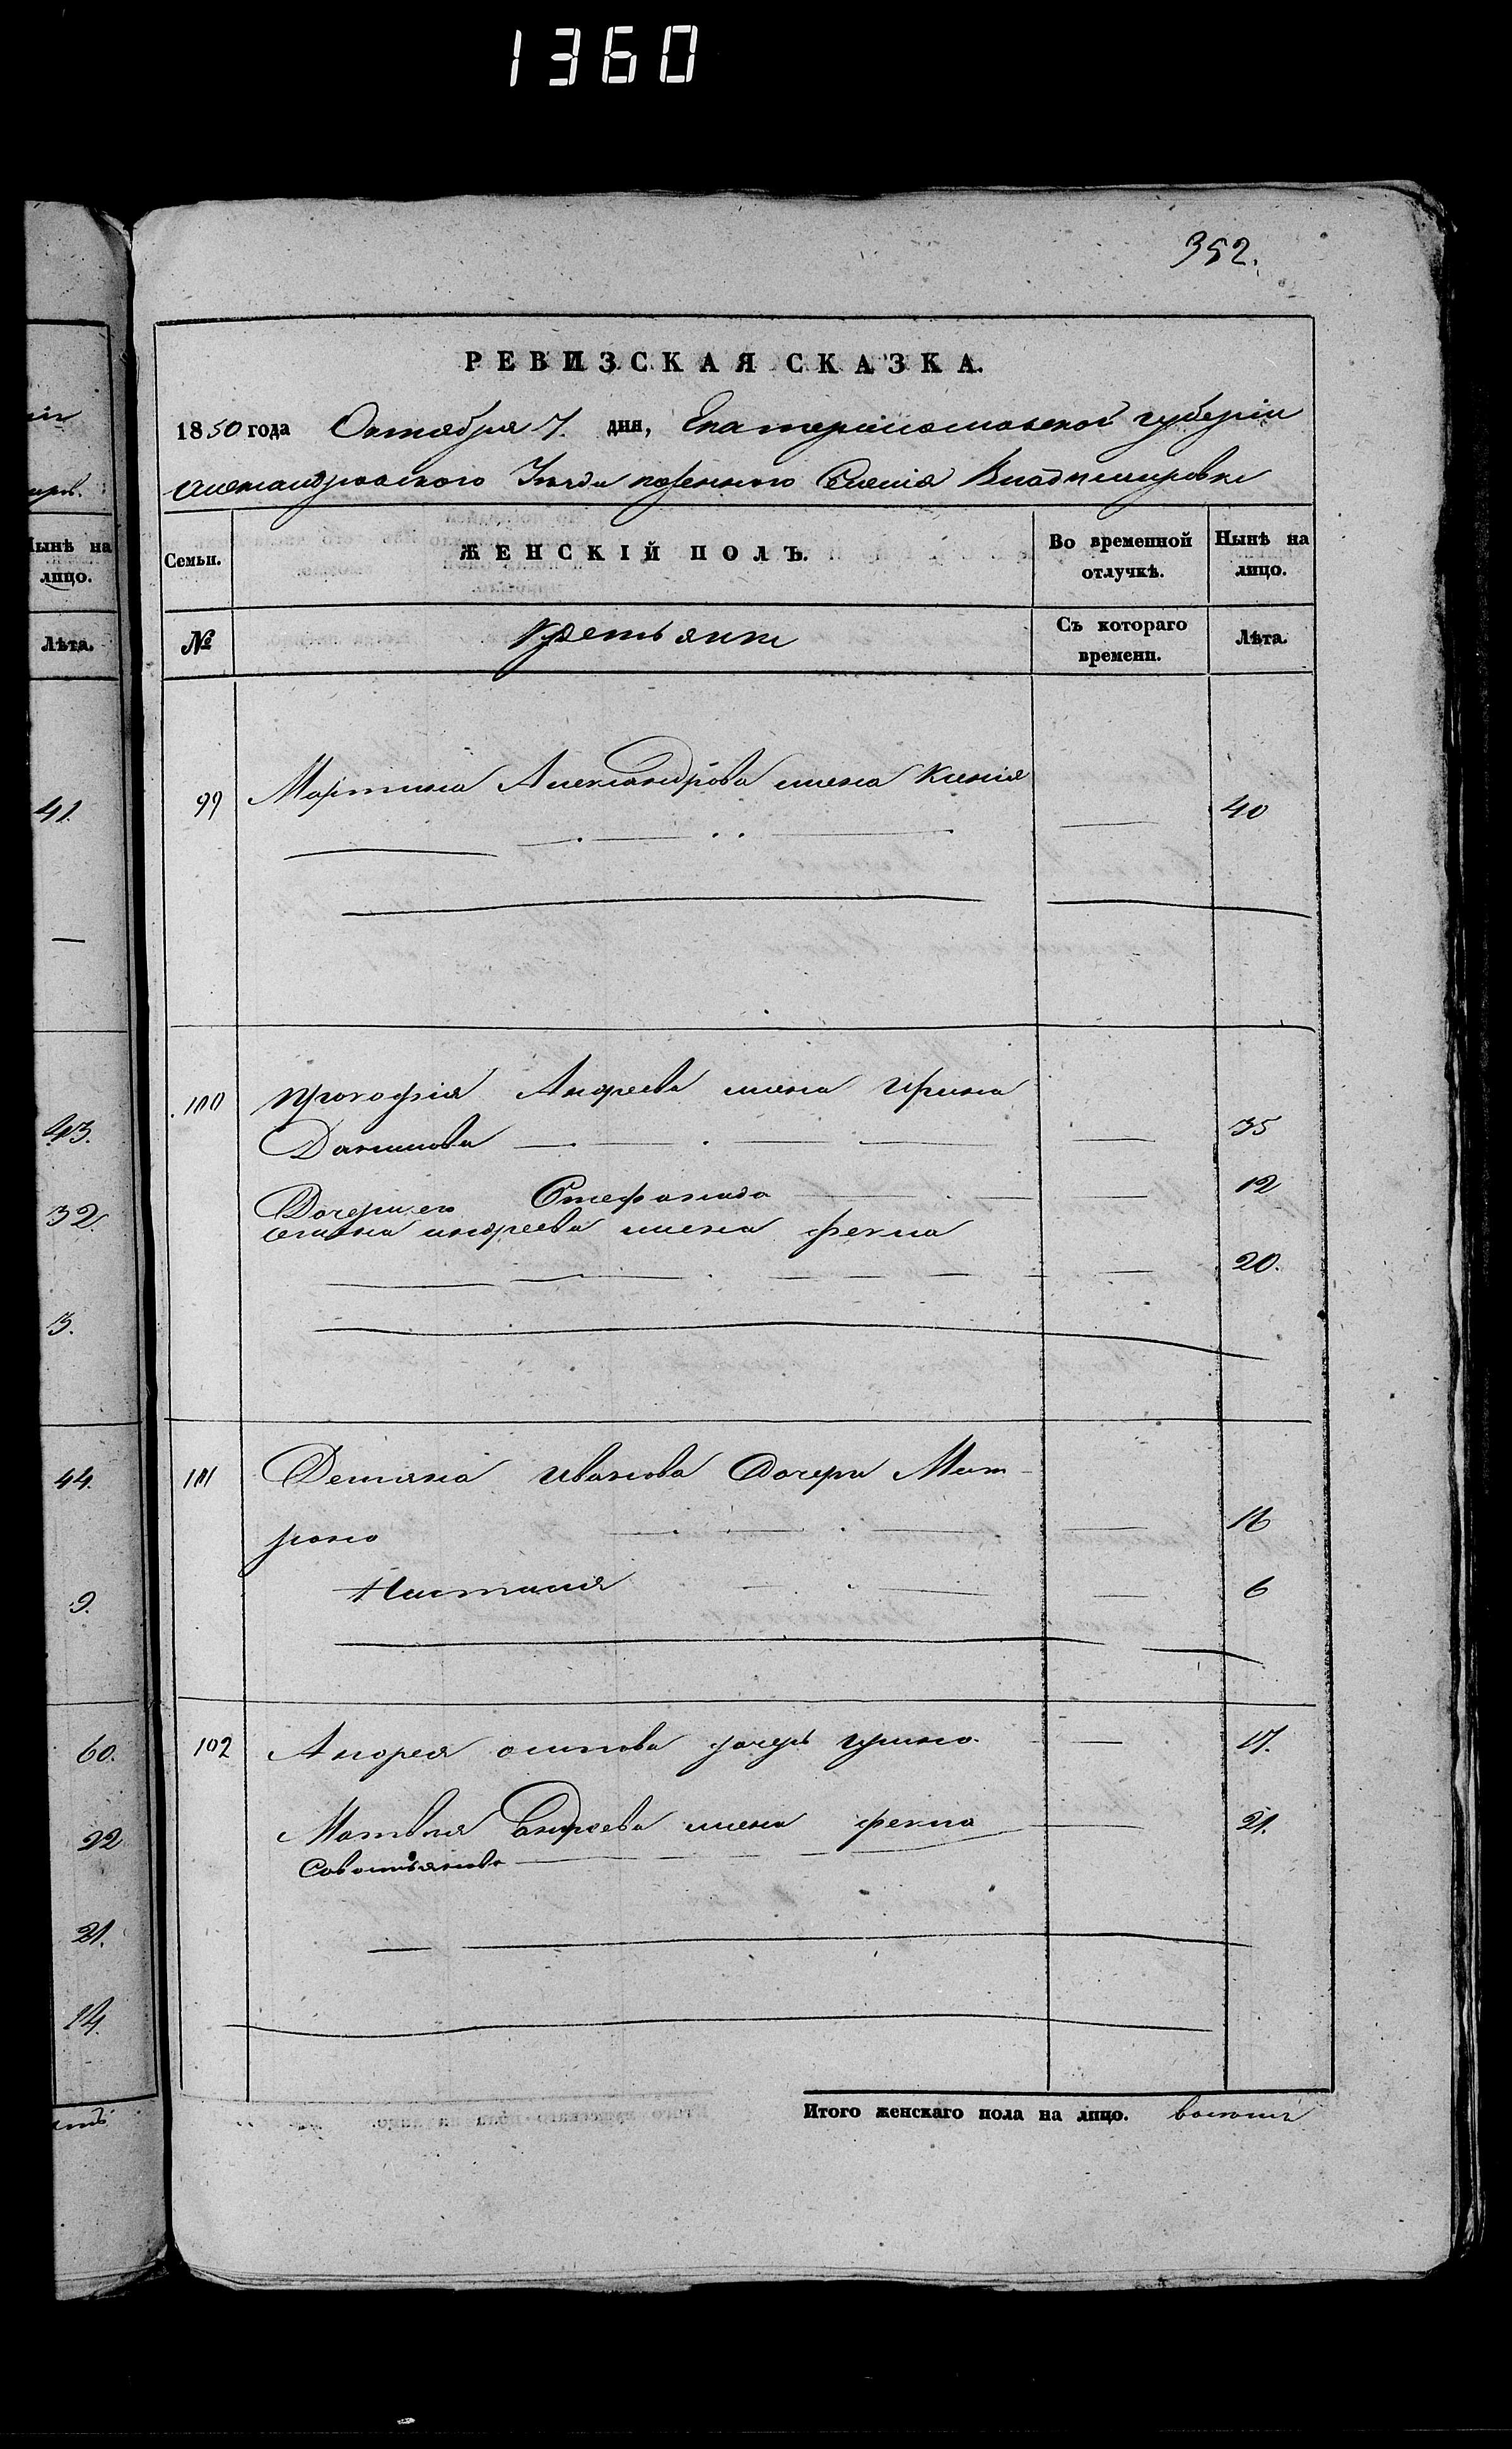 1360
352.
РЕВИЗСКАЯ СКАЗКА.
1850 года Октября 7. дня, Екатеринославской губерніи
Александровскаго Уезда казенного Селенія Владимировки
Семьи.
ЖЕНСКІЙ ПОЛЪ.
Во временной отлучкѣ.
Нынѣ на лицо.
№
Съ котораго времени.
Лѣта.
99 Мартина Александрова жена Ксенія 40
100 Прокофія Андреева жена Ирина
Данилова 35
Дочери его Стефанида 12
андреева жена фекла
20.
101 Демяна Иванова Дочери Мат-
рона 16
Наталия 6
102 Андрея осипова дочерь Ирина 17.
Матвея Андреева жена фекла 21.
Итого женскаго пола на лицо. восемь
Нынѣ на
лицо.
Лѣта.
41.
43.
32.
3.
44.
9.
60.
22
21.
14.